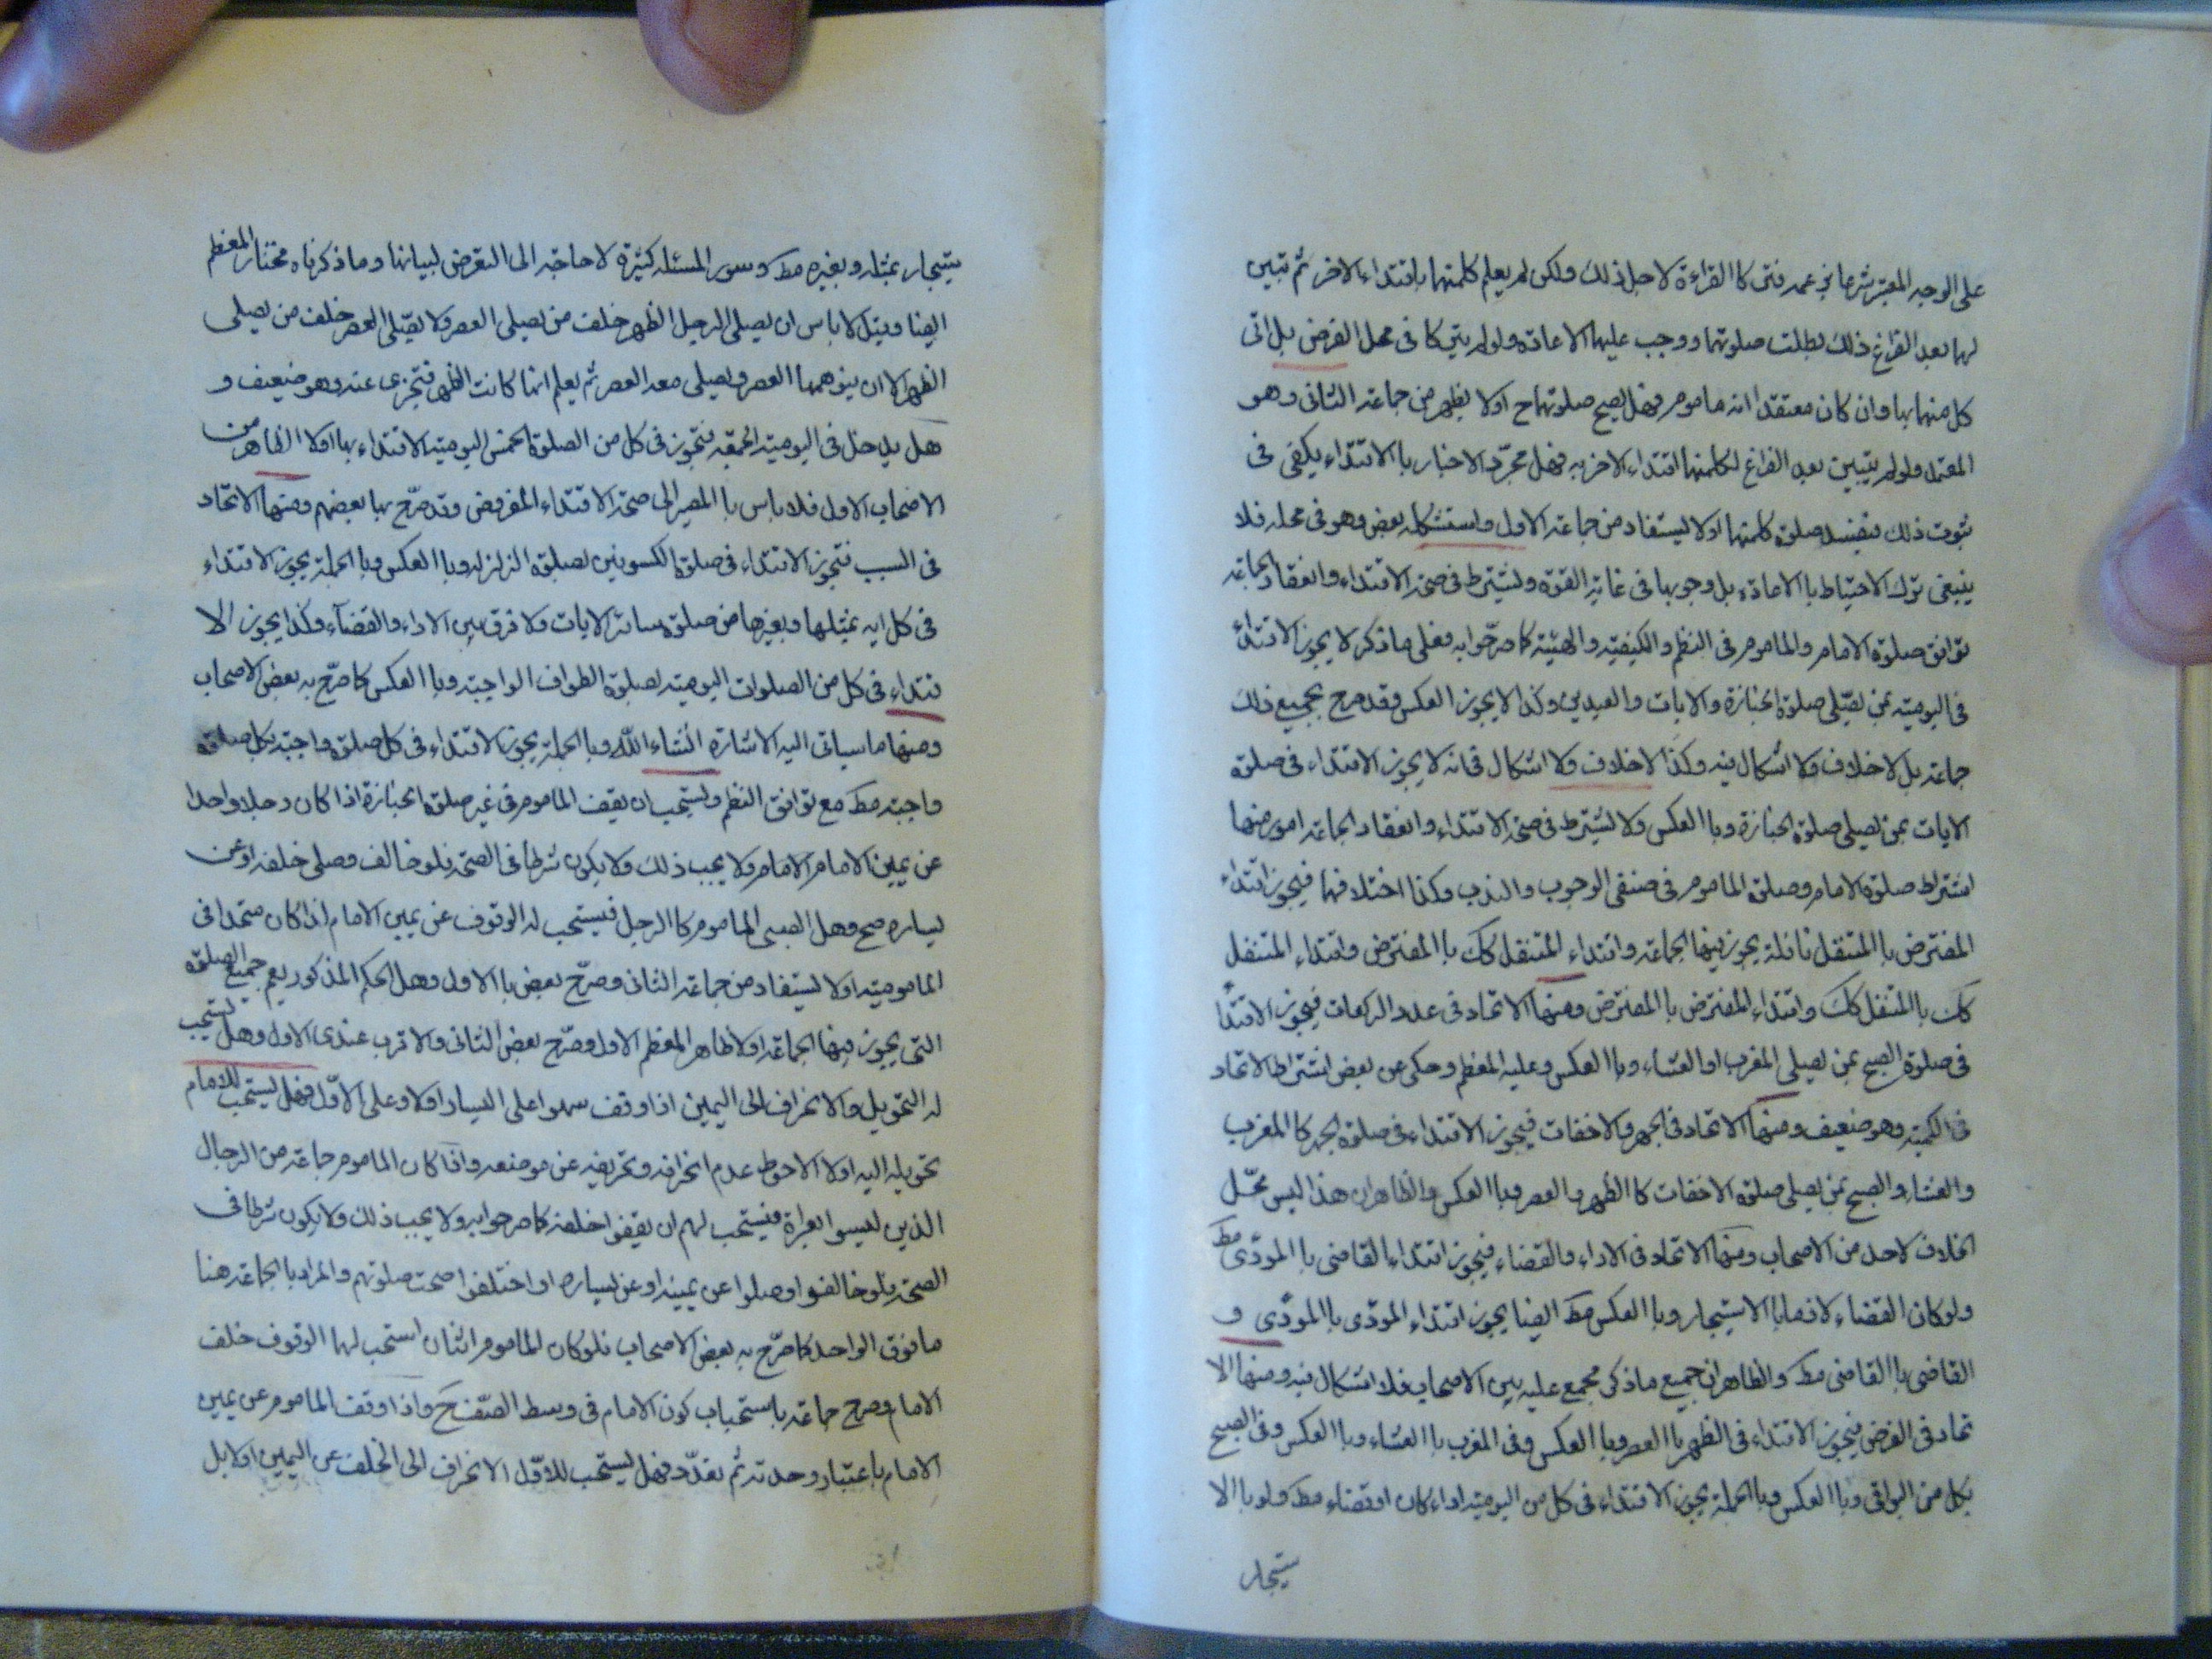 على الوجه المعتبر شرعا في عمد فتى كا القراءة لاجل ذلك ولكن لم يعلم كلمنهما باقتداء الاخر ثم تبين
لهما بعد الفراغ ذلك بطلت صلوتهما ووجب عليهما الاعادة ولو لم يتركا فى محل الفرض بل اتى
كل منهما بها وان كان معتقدا انه ماموم فهل يصح صلوتهما ح اولا يظهر من جماعة الثانى وهو
المعتمد ولو لم يتبين بعد الفراغ لكلمنهما اقتداء الاخر به فهل مجرّد الاخبار با الاقتداء يكفى فى
ثبوت ذلك فيفسد صلوة كلمنهما اولا يستفاد من جماعة الاول واستشكله بعض وهو فى محله فلا
ينبغى ترك الاحتياط با الاعادة بل وجوبها فى غاية القوة ويشترط فى صحة الاقتداء وانعقاد الجماعة
توافق صلوة الامام والماموم فى النظم والكيفيته والهيئة كما صرّحوا به فعلى ما ذكر لا يجوز الاقتداء
فى اليوميته بمن يصلّى صلوة الجنازة والايات والعيدين وكذا لا يجوز العكس وقد صرح بجميع ذلك
جماعة بل لا خلاف ولا اشكال فيه وكذا لا خلاف ولا اشكال فى انه لا يجوز الاقتداء فى صلوة
الايات بمن يصلى صلوة الجنازة وبا العكس ولا يشترط فى صحة الاقتداء وانعقاد الجماعة امور منها
اشتراط صلوة الامام وصلوة الماموم فى صنفى الوجوب والندب وكذا اختلافهما فيجوز اقتداء
المفترض با المتنفل نافلة يجوز فيها الجماعة واقتداء المتنفل كك با المفترض واقتداء المتنفل
كك با المتنفل كك واقتداء المفترض با المفترض ومنها الاتحاد فى عدد الركعات فيجوز الاقتداء
فى صلوة الصبح بمن يصلى المغرب او العشاء وبا العكس وعليه المعظم وحكى عن بعض اشتراط الاتحاد
فى الكميته وهو ضعيف ومنها الاتحاد فى الجهر والاخفات فيجوز الاقتداء فى صلوة الجهر كا المغرب
والعشاء والصبح بمن يصلى صلوة الاخفات كا الظهر والعصر وبا العكس والظاهر ان هذا ليس محّل
الخلاف لاحد من الاصحاب ومنها الاتحاد فى الاداء والقضاء فيجوز اقتداء القاضى با المودّى مط
ولو كان القضاء لازما با الاستيجار وبا العكس مط ايضا يجوز اقتداء المودّى با المودّى و
القاضى با القاضى مط والظاهر ان جميع ما ذكر مجمع عليه بين الاصحاب فلا اشكال فيه ومنها الا
تحاد فى الفرض فيجوز الاقتداء فى الظهر با العصر وبا العكس وفى المغرب با العشاء وبا العكس وفى الصبح
بكل من البواقى وبا العكس وبا الجملة يجوز الاقتداء فى كل من اليوميته اداء كان او قضاء مط ولو با الا
ستيجار
يتيجار بمثله وبغيره مط وصور المسئله كثيرة لا حاجة الى التعرض لبيانها وما ذكرناه مختار المعظم
ايضا وقيل لا باس ان يصلى الرجل الظهر خلف من يصلى العصر ولا يصّلى العصر خلف من يصلى
الظهر الا ان يتوهمها العصر فيصلى معه العصر ثم يعلم انها كانت الظهر فتجزى عنه وهو ضعيف و
هل يدخل فى اليوميته الجمعة فتجوز فى كل من الصلوة الخمس اليوميته الاقتداء بها اولا الظاهر من
الاصحاب الاول فلا باس با المصير الى صحة الاقتداء المفروض وقد صرّح بها بعضهم ومنها الاتحاد
فى السبب فتجوز الاقتداء فى صلوة الكسوفين لصلوة الزلزله وبا العكس وبا الجملة يجوز الاقتداء
فى كل ايه بمثلها وبغيرها من صلوة سائر الايات ولا فرق بين الاداء والقضاء وكذا يجوز الا
قتداء فى كل من الصلوات اليوميته لصلوة الطواف الواجبته وبا العكس كما صرّح به بعض الاصحاب
ومنها ما سياتى اليه الاشارة انشاء اللّه وبا الجملة يجوز الاقتداء فى كل صلوة واجبته بكل صلوة
واجبته مط مع توافق النظم ويستحب ان يقف الماموم فى غير صلوة الجنازة اذا كان رجلا واحدا
عن يمين الامام الامام ولا يجب ذلك ولا يكون شرطا فى الصحة فلو خالف وصلى خلفه او عن
يساره صح وهل الصبى الماموم كا الرجل فيستحب له الوقوف عن يمين الامام اذا كان متحدا فى
المامومية اولا يستفاد من جماعة الثانى وصرّح بعض با الاول وهل الحكم المذكور يعم جميع الصلوة
التى يجوز فيها الجماعة اولا ظاهر المعظم الاول وصرّح بعض الثانى والاقرب عندى الاول وهل يستحب
له التحويل والانحراف الى اليمين اذا وقف سهوا على اليسار اولا وعلى الاوّل فهل يستحب للامام
تحويله اليه اولا الاحوط عدم انحرافه وتحريفه عن موضعه واذا كان الماموم جماعة من الرجال
الذين ليسوا بعراة فيستحب لهم ان يقفوا خلفه كما صرحوا به ولا يجب ذلك ولا يكون شرطا فى
الصحة فلو خالفوا وصلوا عن يمينه او عن يساره او اختلفوا صحت صلوتهم والمراد با الجماعة هنا
ما فوق الواحد كما صرّح به بعض الاصحاب فلو كان الماموم اثنان استحب لهما الوقوف خلف
الامام وصرح جماعة باستحباب كون الامام فى وسط الصّف ح واذا وقف الماموم عن يمين
الامام باعتبار وحدته ثم تعدّد فهل يستحب للاوّل الانحراف الى الخلف عن اليمين اولا بل